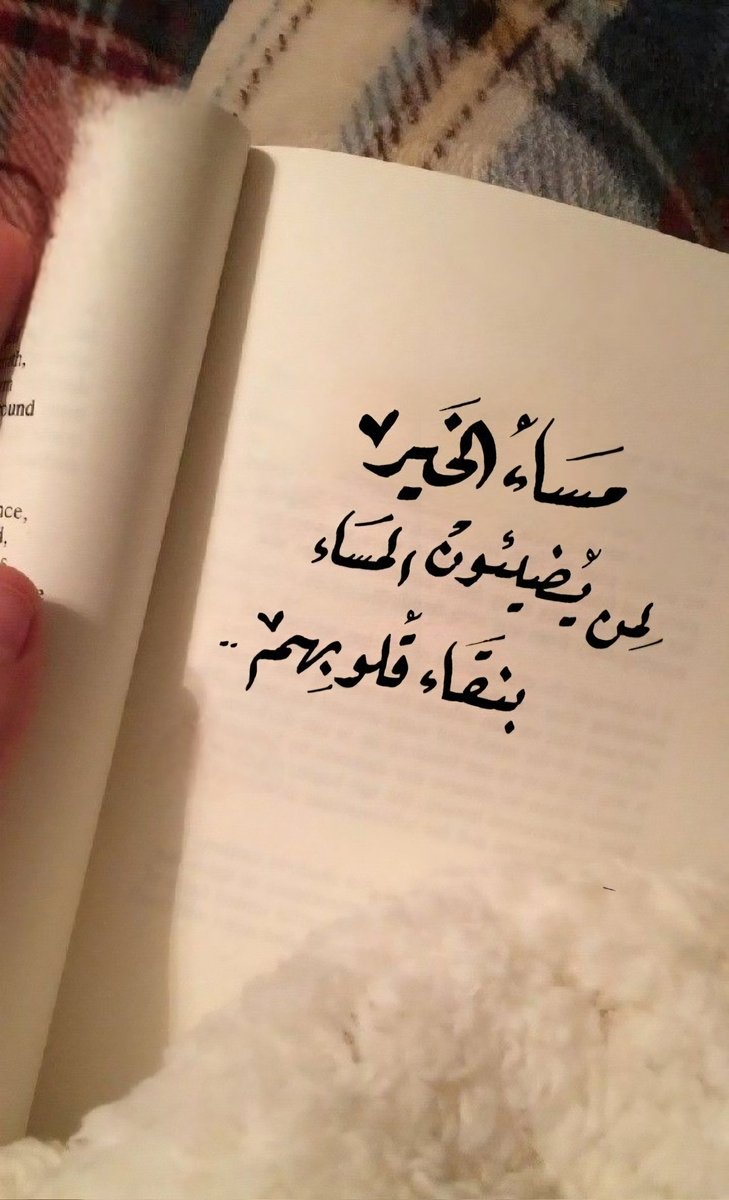 مَساءُ الخَير
لِمن يُضيئونُ المسَاء
بنقَاء قُلوبِهم..
ound
nce,